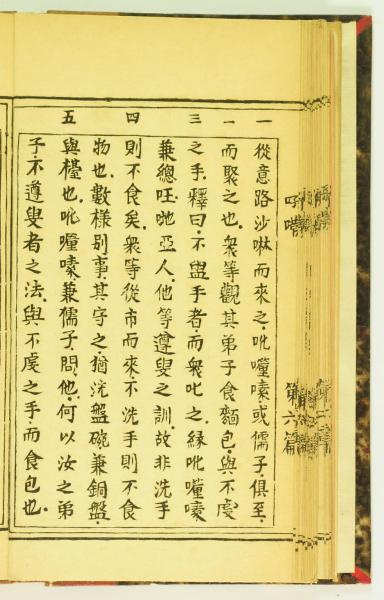 一 從意路沙啉而來之．吡嗦．或儒子．俱至．
一 而聚之也．衆等觀其弟子食麵包．與不虔
三 之手．釋曰．不盥手者．而衆叱之．緣吡嗦
兼總旺咃亞人．他等遵叟之訓．故非洗手
四 則不食矣．衆等從市而來．不洗手則不食
物也．數樣別事．其守之．猶洗盤碗兼銅盤．
五 與檯也．吡嗦兼儒子．問他．何以汝之弟
子．不遵叟者之法．與不虔之手．而食包也．
第六篇